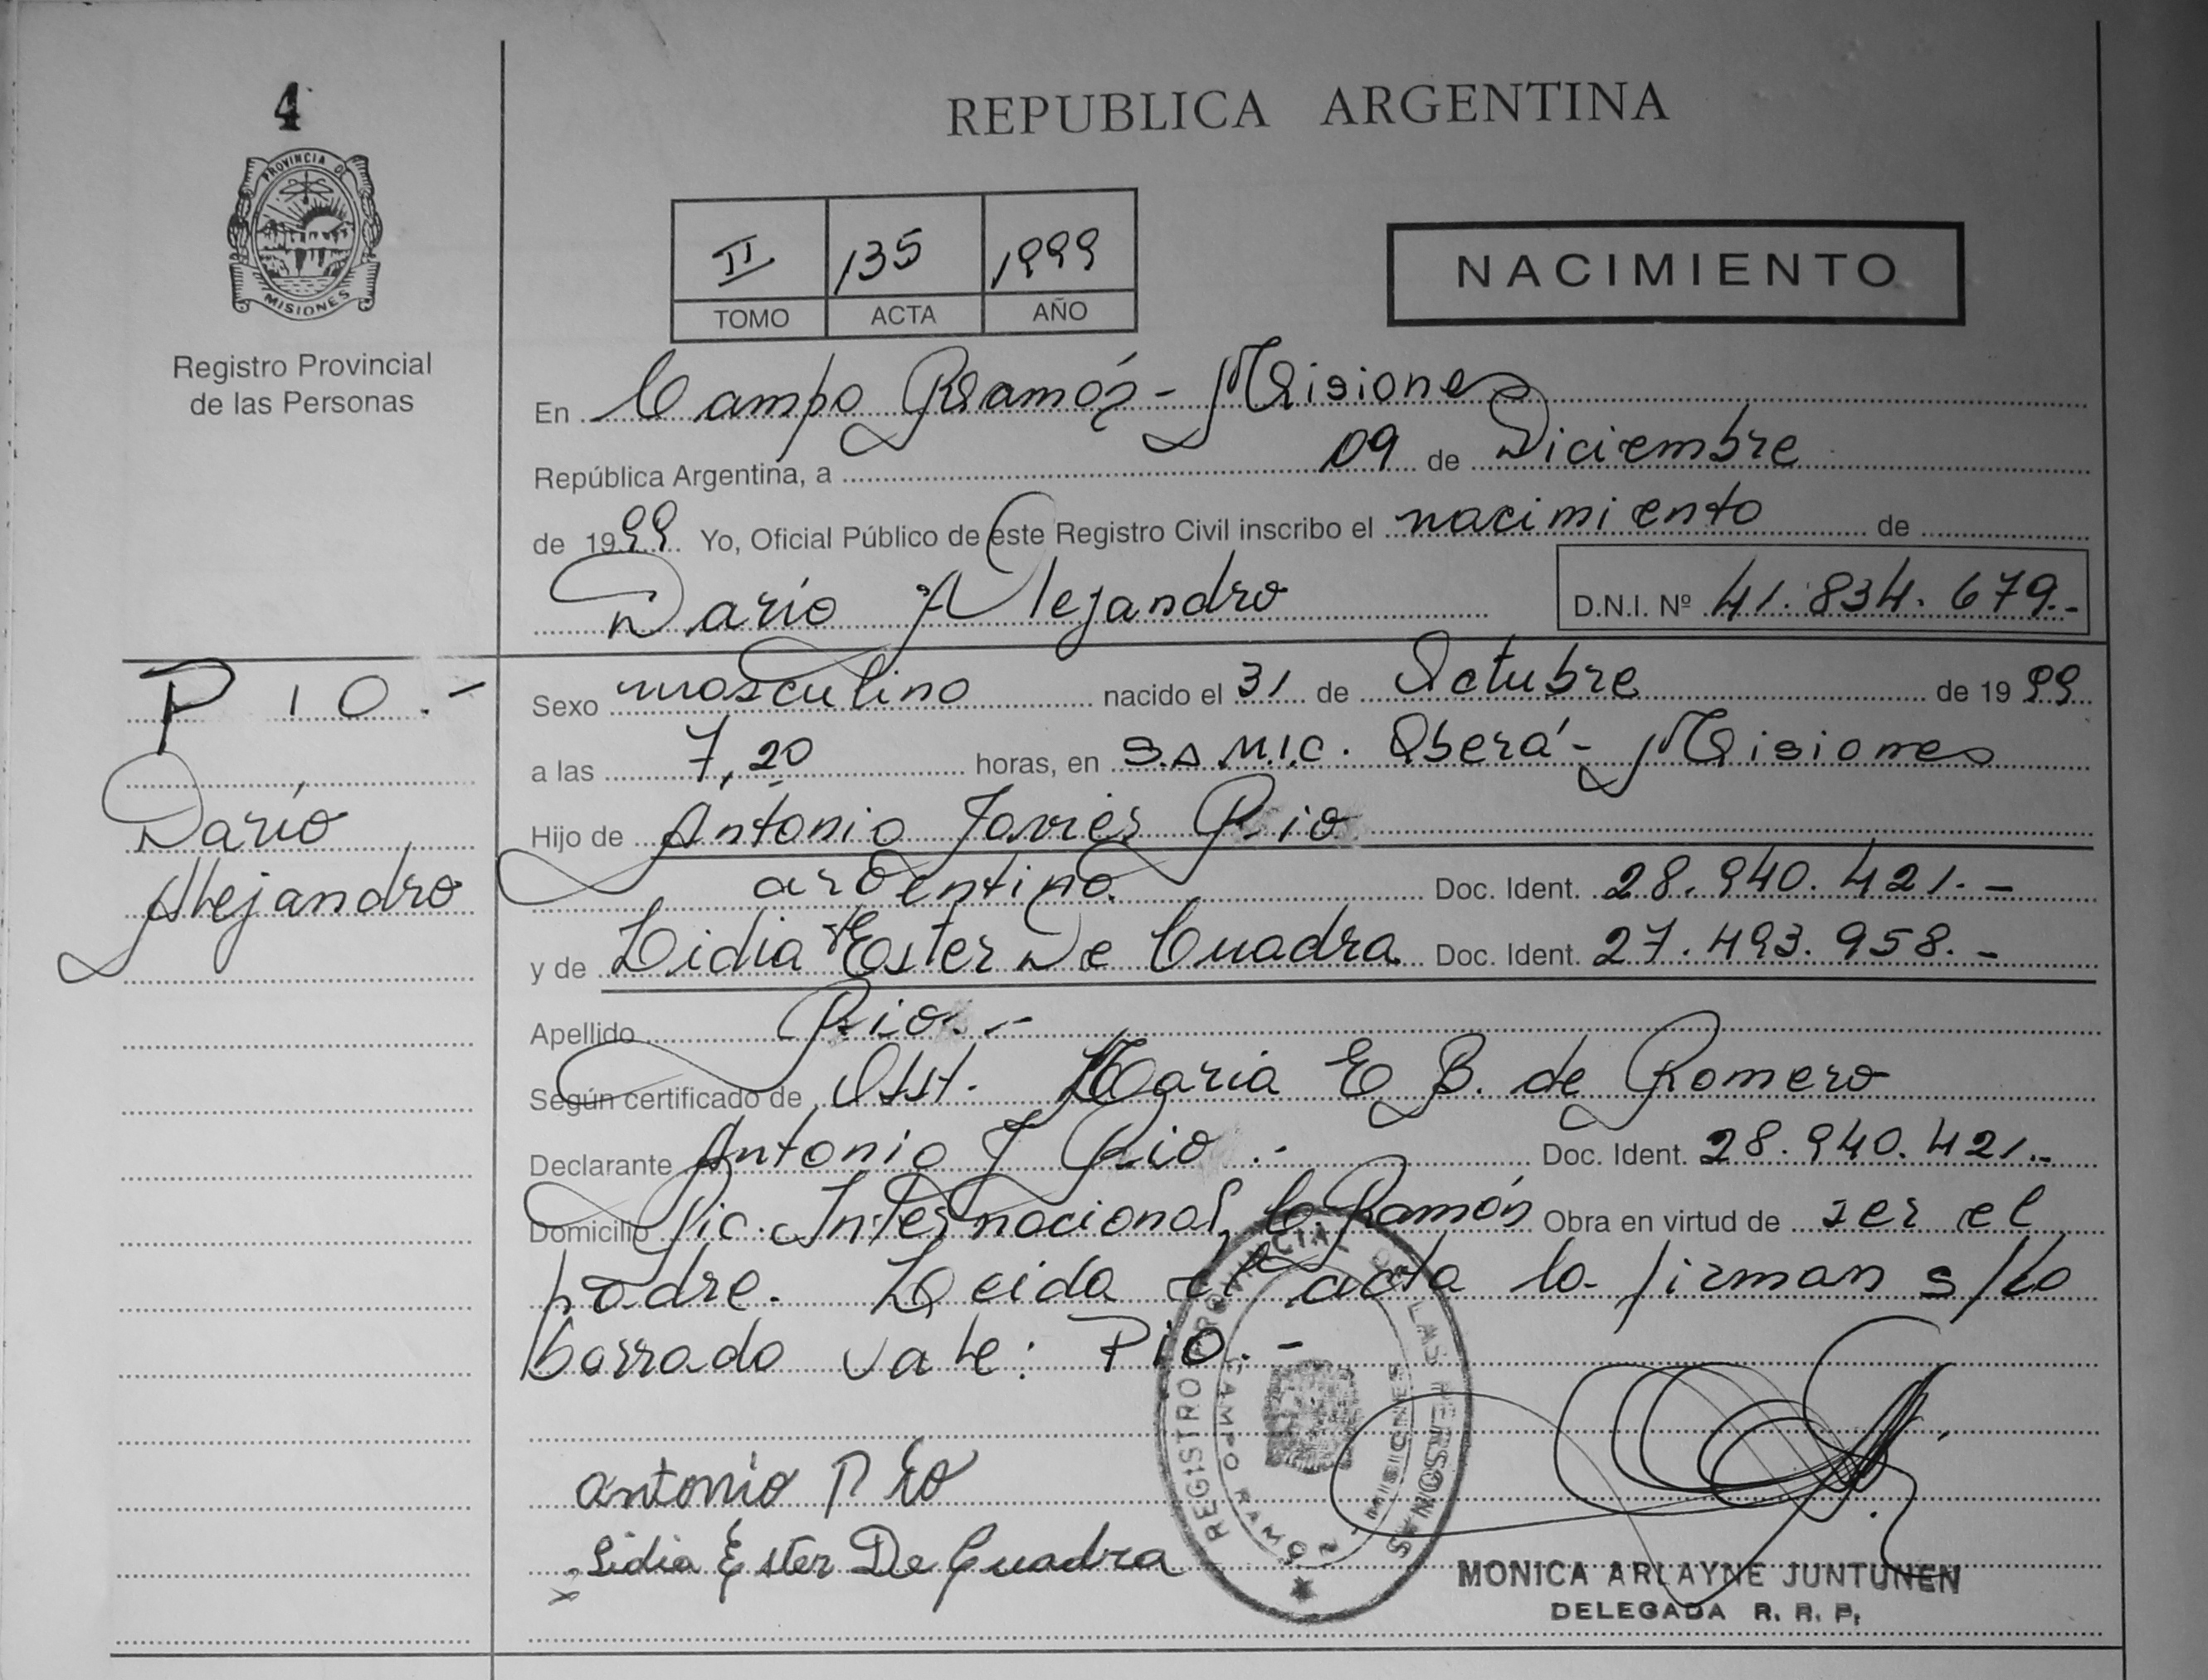 4
PROVINCIA DE
MISIONES
Registro Provincial
de las Personas
REPUBLICA ARGENTINA
II 135 1999
TOMO ACTA AÑO
NACIMIENTO
En Campo Ramón - Misiones
República Argentina, a 09 de Diciembre
de 1999 Yo, Oficial Público de este Registro Civil inscribo el nacimiento de
Darío Alejandro D.N.I. Nº 41.834.679.-
PIO.-
Darío
Alejandro
Sexo masculino nacido el 31 de Octubre de 1999
a las 7,20 horas, en S.s M.I.C. Oberá - Misiones
Hijo de Antonio Javier Pio
argentino. Doc. Ident. 28.940.421.-
y de Lidia Ester De Cuadra Doc. Ident. 27.493.958.-
Apellido Pio.-
Según certificado de Obst. Maria E B. de Romero
Declarante Antonio J Pio.- Doc. Ident. 28.940.421.-
Domicilio Pic. Internacional, C. Ramón Obra en virtud de ser el
padre. Leida el acta la firman s/lo
borrado vale: Pio.-
antonio Pio
Lidia Ester De Cuadra
REGISTRO PROVINCIAL DE LAS PERSONAS
CAMPO RAMON - MISIONES
MONICA ARLAYNE JUNTUNEN
DELEGADA R. R. P.